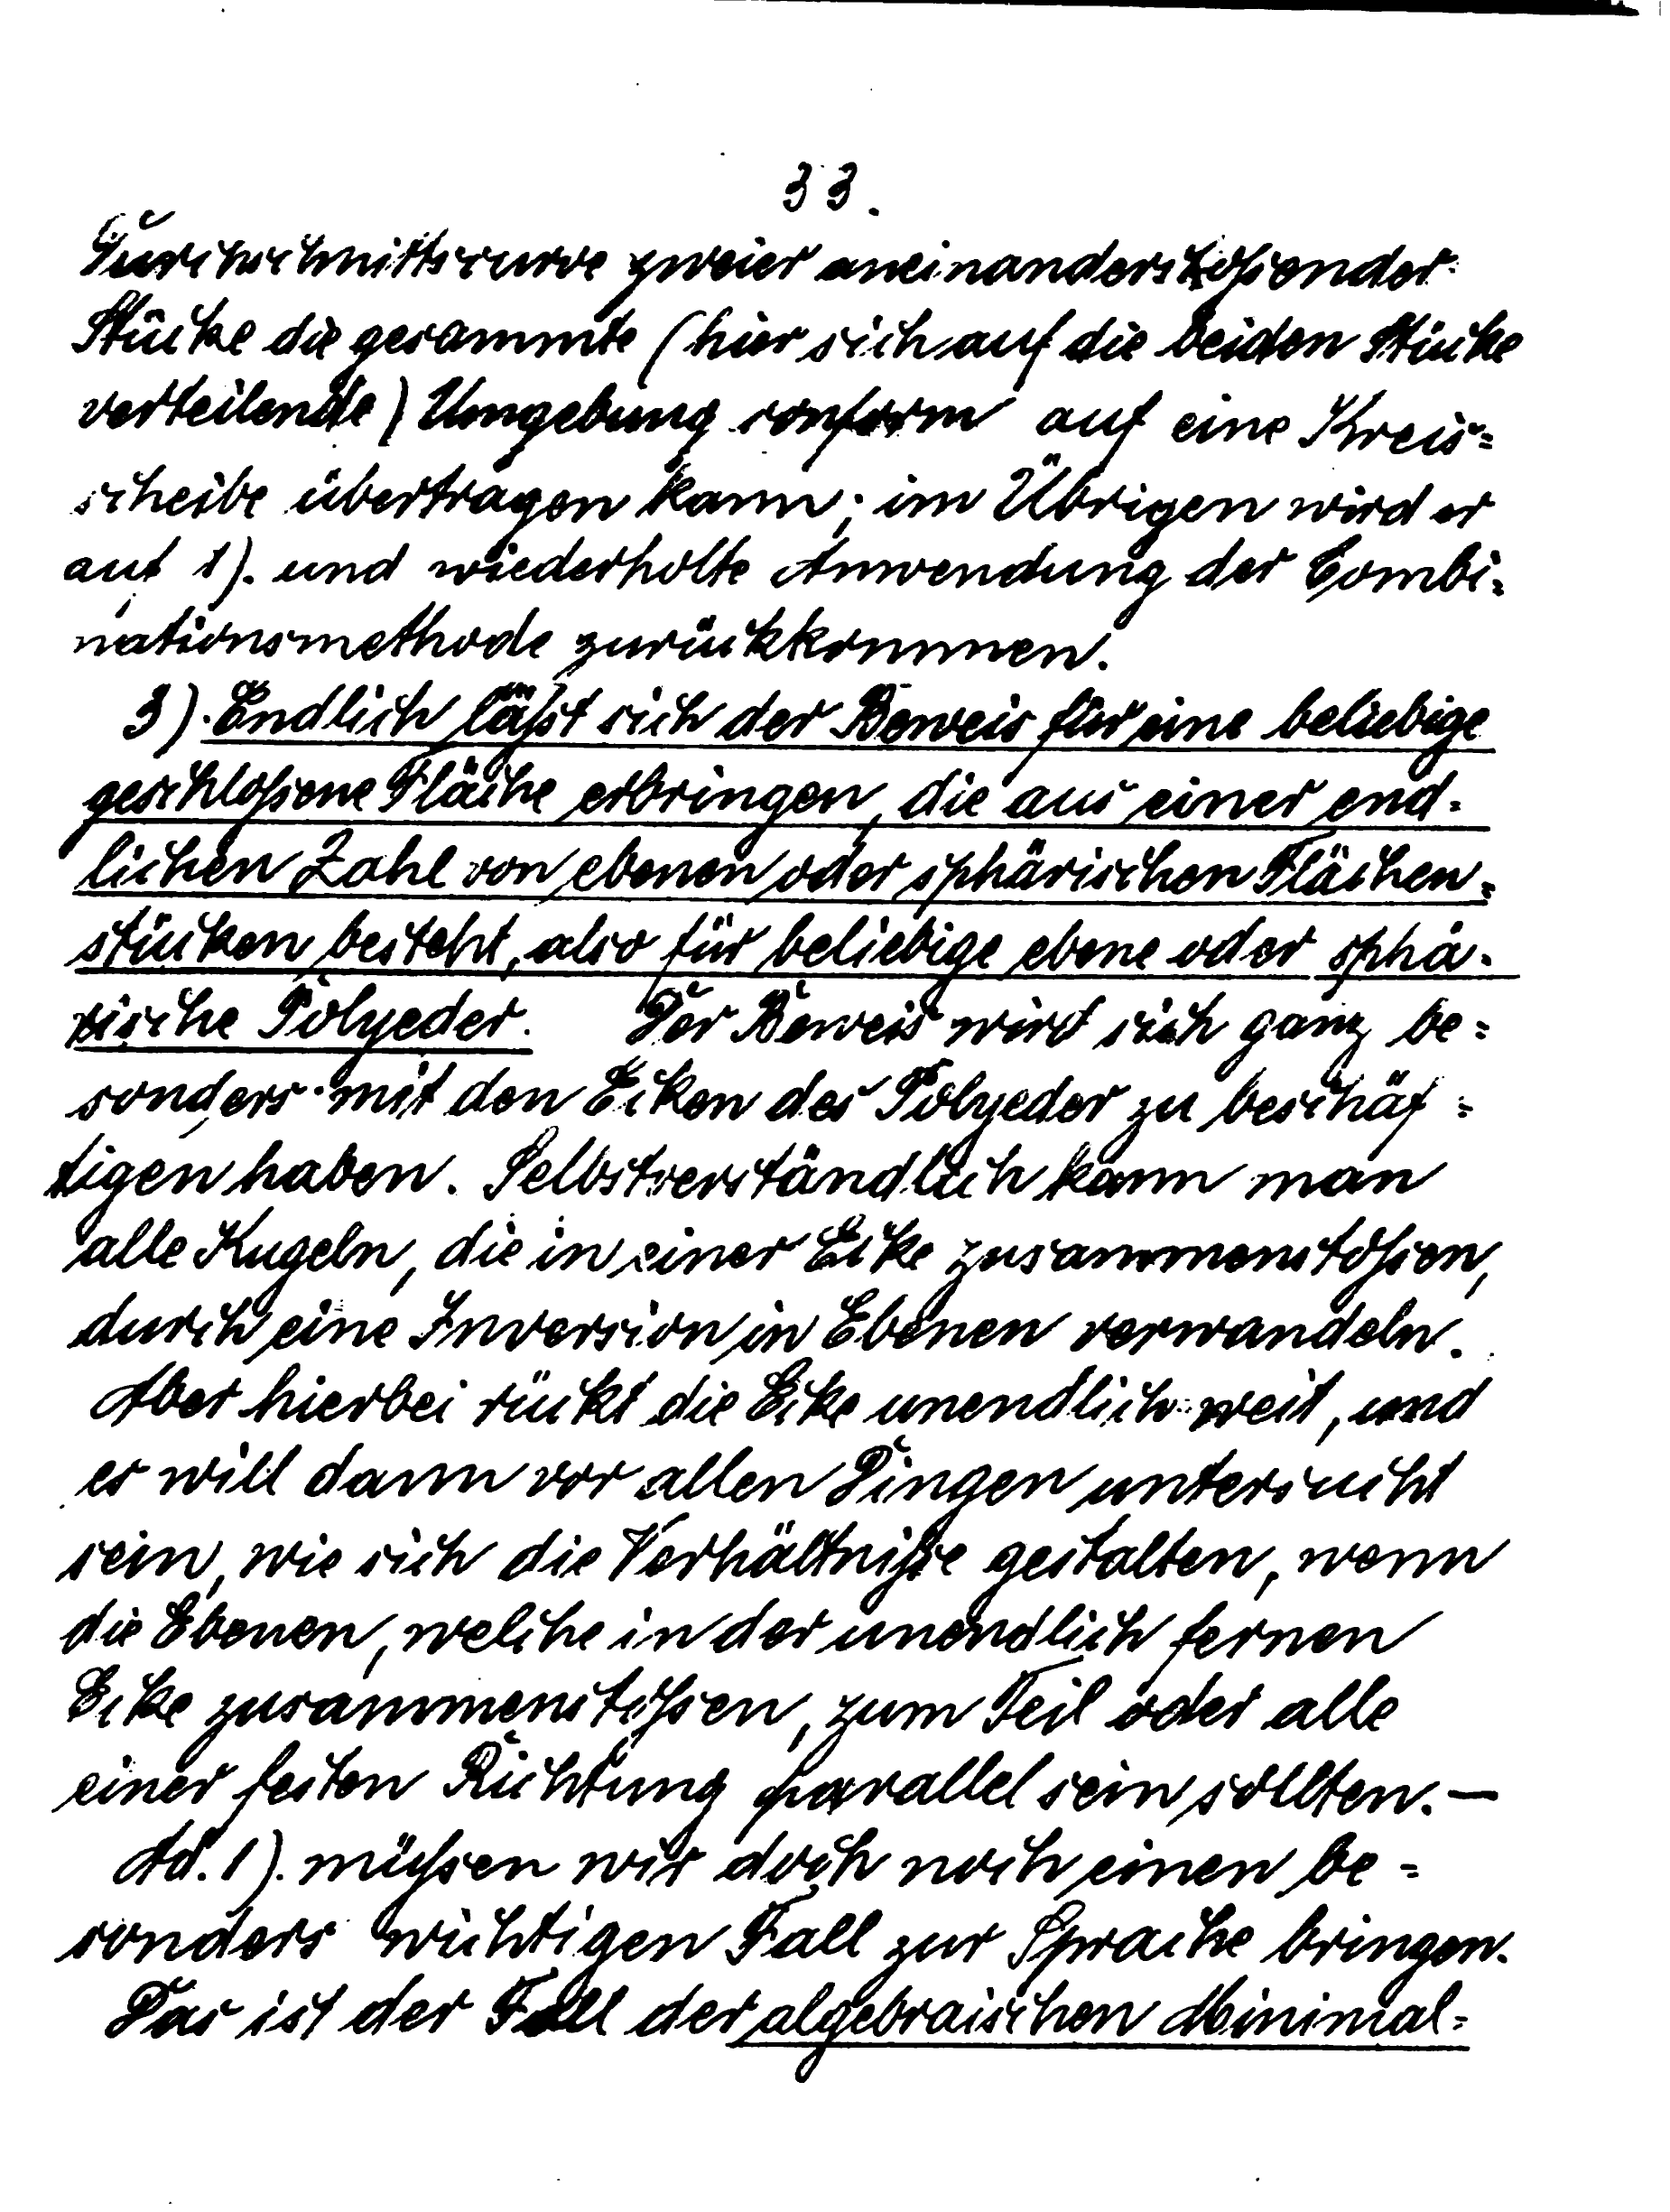 33.
Durchschnittscurve zweier aneinanderstoßender
Stücke die gesammte (hier sich auf die beiden Stücke
verteilende) Umgebung conform auf eine Kreis=
scheibe übertragen kann; im Übrigen wird er
auf 1). und wiederholte Anwendung der Combi=
nationsmethode zurückkommen.
3). Endlich läßt sich der Beweis für eine beliebige
geschloßene Fläche erbringen, die aus einer end=
lichen Zahl von ebenen oder sphärischen Flächen=
stücken besteht, also für beliebige ebene oder sphä=
rische Polyeder. Der Beweis wird sich ganz be=
sonders mit den Ecken des Polyeder zu beschäf=
tigen haben. Selbstverständlich kann man
alle Kugeln, die in einer Ecke zusammenstoßen,
durch eine Inversion in Ebenen verwandeln.
Aber hierbei rückt die Ecke unendlich weit, und
es will dann vor allen Dingen untersucht
sein, wie sich die Verhältniße gestalten, wenn
die Ebenen, welche in der unendlich fernen
Ecke zusammenstoßen, zum Teil oder alle
einer festen Richtung parallel sein sollten. —
Ad. 1). müßen wir doch noch einen be=
sonders wichtigen Fall zur Sprache bringen.
Das ist der Fall der algebraischen Minimal=